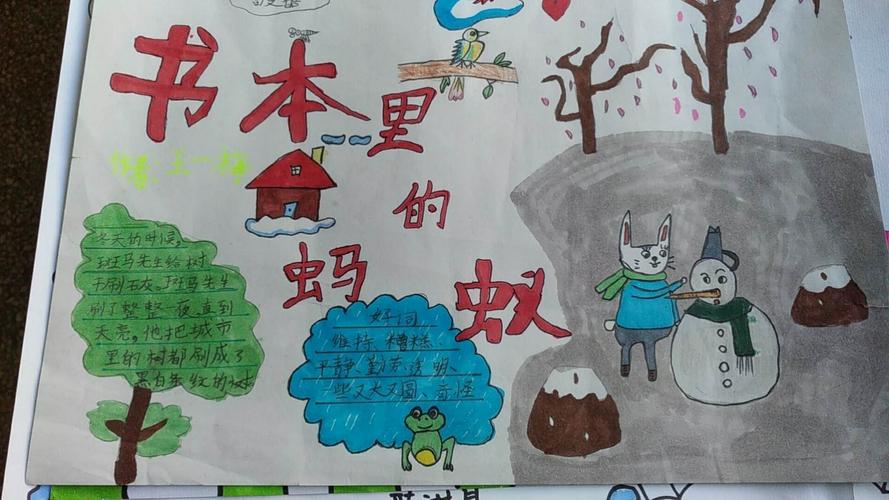 书本里的蚂蚁
作者:王一梅
冬天的时候,
斑马先生给树
干刷石灰。斑马先生
刷了整整一夜,直到
天亮。他把城市
里的树都刷成了
黑白条纹的树
好词
维持、糟糕、
平静、勤劳、透明、
一些又大又圆、奇怪